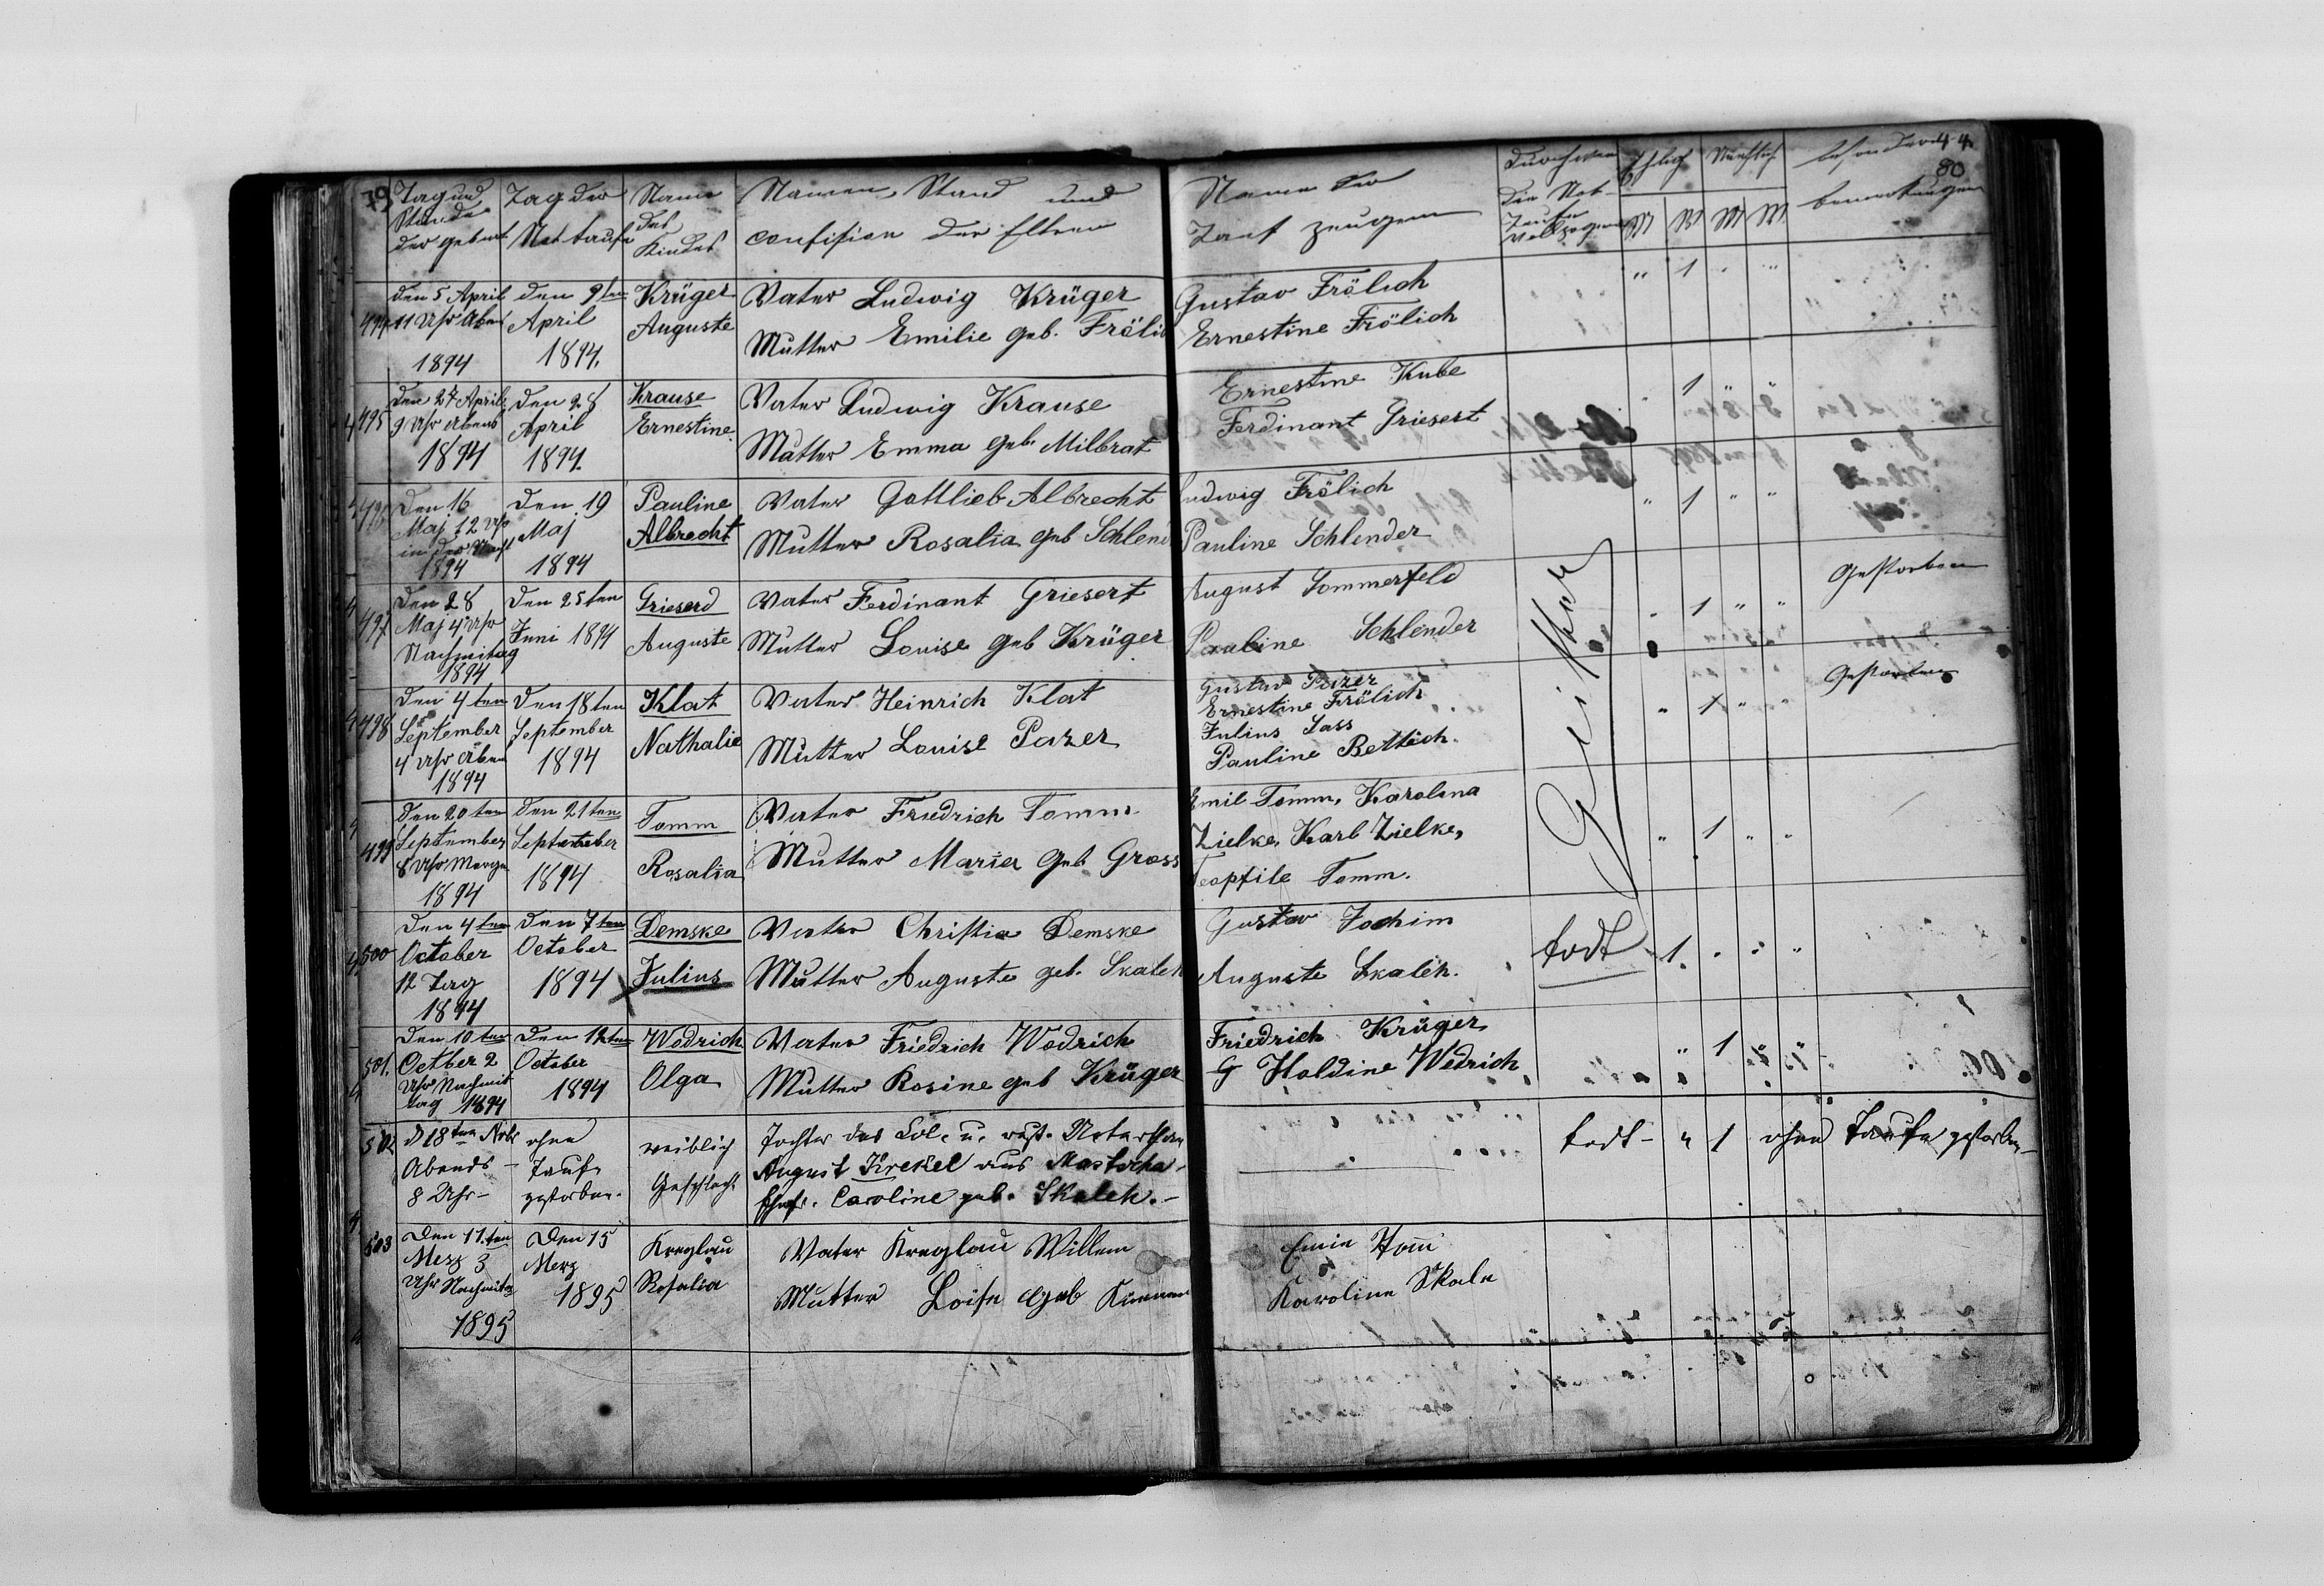 79
Tag und
Stunde
der geburt
Tag der
Not taufe
Name
des
Kindes
Namen, Stand und
confision der Eltern
Name der
Tauf zeugen
durch wen
die Not-
Taufe
Vollzogen
Ehlich
M W M W
besondere
bemerkungen
44
80
494
den 5 April
11 Uhr Abend
1894
den 9ten
April
1894.
Krüger
Auguste
Vater Ludwig Krüger
Mutter Emilie geb. Frölich
Gustav Frölich
Ernestine Frölich
" 1 " "
495
den 27 April
9 Uhr Abends
1894
den 28
April
1894.
Krause
Ernestine
Vater Ludwig Krause
Mutter Emma geb. Milbrat
Ernestine Kube
Ferdinant Griesert
" 1 " "
496
Den 16
Maj 12 Uhr
in der Nacht
1894
Den 19
Maj
1894
Pauline
Albrecht
Vater Gottlieb Albrecht
Mutter Rosalia geb Schlend
Ludwig Frölich
Pauline Schlender
" 1 " "
497
Den 28
Maj 4 Uhr
Nachmitag
1894
Den 25ten
Juni 1894
Grieserd
Auguste
Vater Ferdinant Griesert
Mutter Louise geb Krüger
August Sommerfeld
Pauline Schlender
" 1 " "
Gestorben
498
Den 4ten
September
4 Uhr Aben
1894
Den 18ten
September
1894
Klat
Nathalie
Vater Heinrich Klat
Mutter Louise Pazer
Gustav Pazer
Ernestine Frölich
Julius Sass
Pauline Bettich.
" 1 " "
Gestorben
499
Den 20ten
September
8 Uhr Morgen
1894
Den 21ten
September
1894
Tomm
Rosalia
Vater Friedrich Tomm
Mutter Maria geb Gross
Emil Tomm, Karolina
Zielke, Karl Zielke,
Teopfile Tomm.
" 1 " "
500
Den 4ten
October
12 Tag
1894
Den 7ten
October
1894
Demske
Julius
Vater Christia Demske
Mutter Auguste geb. Skaleh
Gustav Jochim
Auguste Skaleh.
todt 1. " " "
501.
Den 10ten
Octber 2
Uhr Nachmit
tag 1894
Den 12ten
October
1894
Wodrich
Olga
Vater Friedrich Wodrich
Mutter Rosine geb Krüger
Friedrich Krüger
G Holdine Wedrich
" 1 " "
502
D 18ten Nvbr
Abends –
8 Uhr –
ohne
Tauf
gestorben.
weiblich
Geschlecht
Tochter des Col. u.
August Krekel aus
Ehefr. Caroline geb. Skaleh. –
todt – " 1 ohne Taufe gestorben –
503
Den 11.ten
Merz 3
Uhr Nachmitag
1895
Den 15
Merz
1895
Kreglau
Rosalia
Vater Kreglau Willem
Mutter Loise Geb
Karoline Skale